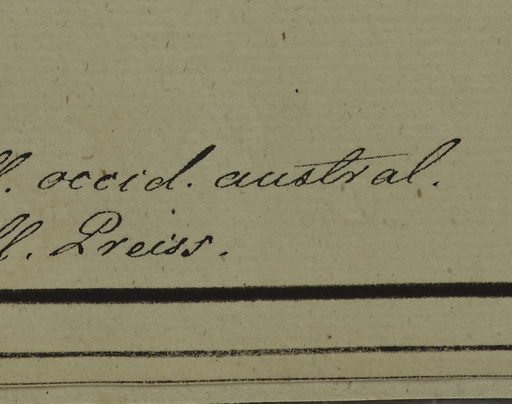 occid. austral.
Preiss.